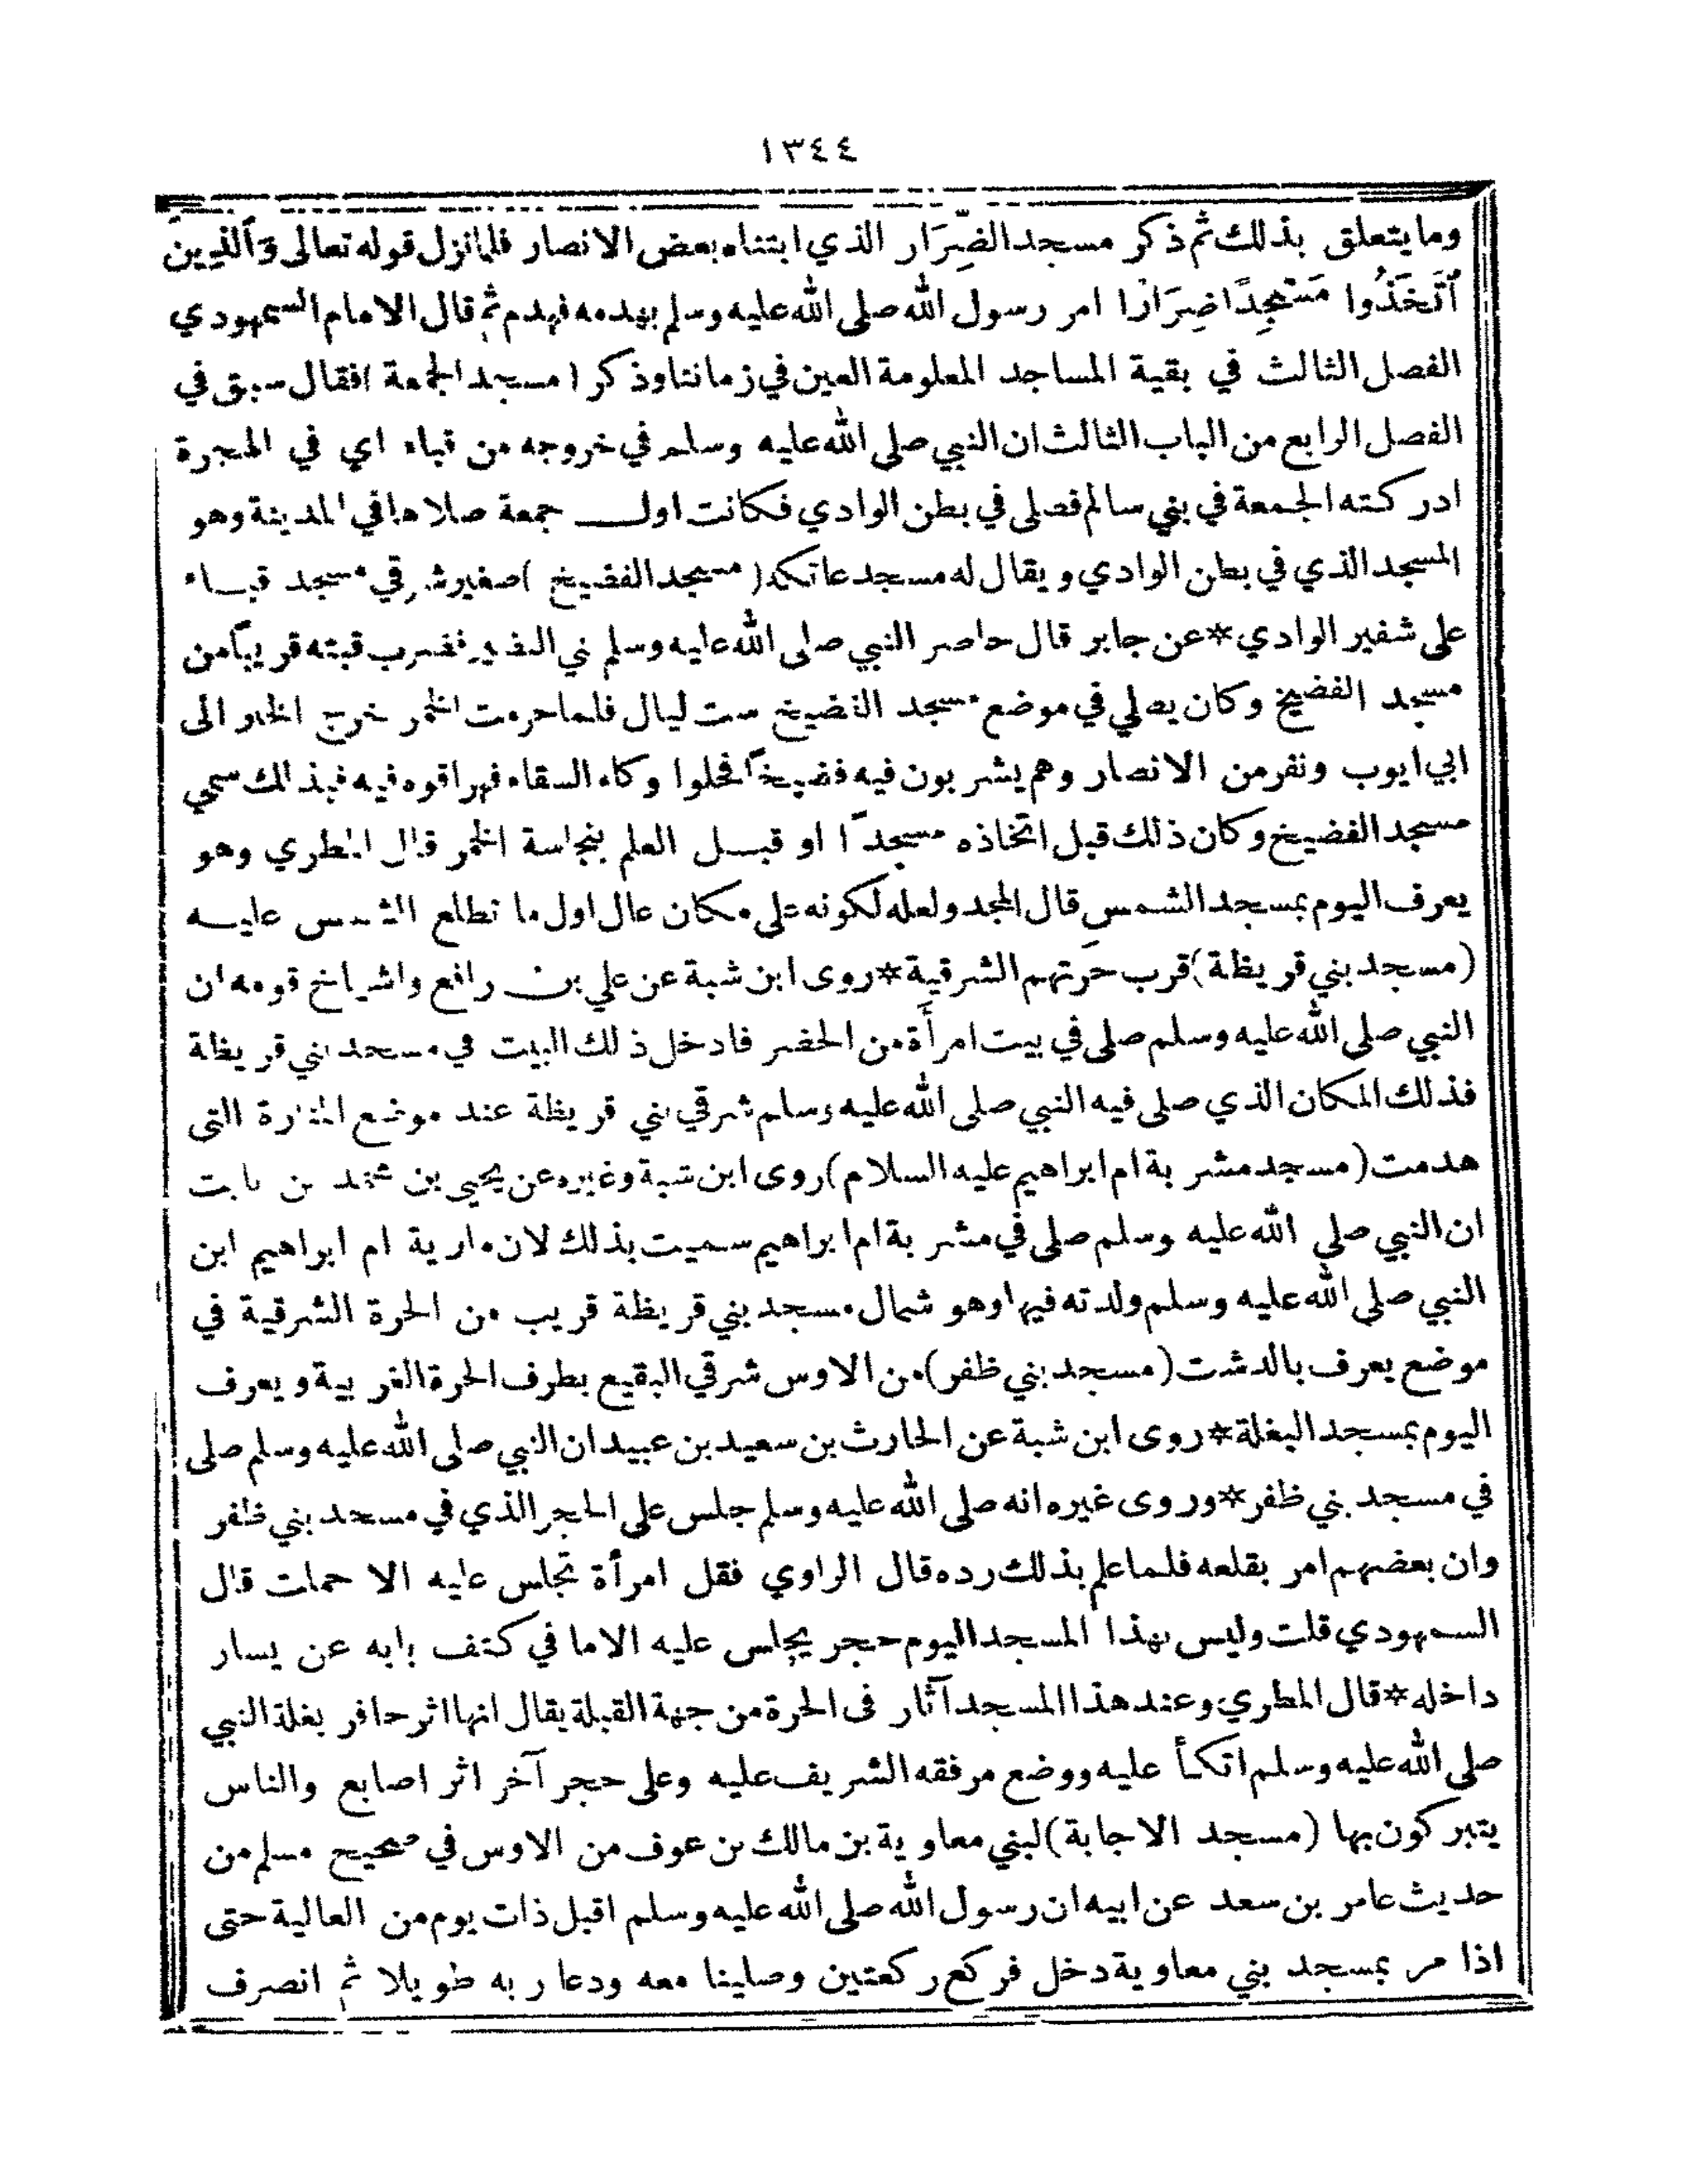 ١٣٤٤
وما يتعلق بذلك ثم ذكر مسجد الضِّرَار الذي ابتناه بعض الانصار فلما نزل قوله تعالى وَٱلَّذِينَ
ٱتَّخَذُوا مَسْجِدًا ضِرَارًا امر رسول الله صلى الله عليه وسلم بهدمه فهدم ثم قال الامام السمهودي
الفصل الثالث في بقية المساجد المعلومة العين في زماننا وذكر (مسجد الجمعة) فقال سبق في
الفصل الرابع من الباب الثالث ان النبي صلى الله عليه وسلم في خروجه من قباء اي في الهجرة
ادركته الجمعة في بني سالم فصلى في بطن الوادي فكانت اول جمعة صلاها في المدينة وهو
المسجد الذي في بطن الوادي ويقال له مسجد عاتكة (مسجد الفضيخ) صغير شرقي مسجد قباء
على شفير الوادي * عن جابر قال حاصر النبي صلى الله عليه وسلم بني النضير فضرب قبته قريباً من
مسجد الفضيخ وكان يصلي في موضع مسجد الفضيخ ست ليال فلما حرمت الخمر خرج الخبر الى
ابي ايوب ونفر من الانصار وهم يشربون فيه فضيخاً فحلوا وكاء السقاء فهراقوه فيه فبذلك سمي
مسجد الفضيخ وكان ذلك قبل اتخاذه مسجداً او قبل العلم بنجاسة الخمر قال المطري وهو
يعرف اليوم بمسجد الشمس قال المجد ولعله لكونه على مكان عال اول ما تطلع الشمس عليه
(مسجد بني قريظة) قرب حَرتهم الشرقية * روى ابن شبة عن علي بن رافع واشياخ قومه ان
النبي صلى الله عليه وسلم صلى في بيت امرأَة من الخضر فادخل ذلك البيت في مسجد بني قريظة
فذلك المكان الذي صلى فيه النبي صلى الله عليه وسلم شرقي بني قريظة عند موضع المنارة التي
هدمت (مسجد مشربة ام ابراهيم عليه السلام) روى ابن شبة وغيره عن يحيى بن محمد بن ثابت
ان النبي صلى الله عليه وسلم صلى في مشربة ام ابراهيم سميت بذلك لان مارية ام ابراهيم ابن
النبي صلى الله عليه وسلم ولدته فيها وهو شمال مسجد بني قريظة قريب من الحرة الشرقية في
موضع يعرف بالدشت (مسجد بني ظفر) من الاوس شرقي البقيع بطرف الحرة الغربية ويعرف
اليوم بمسجد البغلة * روى ابن شبة عن الحارث بن سعيد بن عبيد ان النبي صلى الله عليه وسلم صلى
في مسجد بني ظفر * وروى غيره انه صلى الله عليه وسلم جلس على الحجر الذي في مسجد بني ظفر
وان بعضهم امر بقلعه فلما علم بذلك رده قال الراوي فقل امرأة تجلس عليه الا حملت قال
السمهودي قلت وليس بهذا المسجد اليوم حجر يجلس عليه الا ما في كتف بابه عن يسار
داخله * قال المطري وعند هذا المسجد آثار فى الحرة من جهة القبلة يقال انها اثر حافر بغلة النبي
صلى الله عليه وسلم اتكأ عليه ووضع مرفقه الشريف عليه وعلى حجر آخر اثر اصابع والناس
يتبركون بها (مسجد الاجابة) لبني معاوية بن مالك بن عوف من الاوس في صحيح مسلم من
حديث عامر بن سعد عن ابيه ان رسول الله صلى الله عليه وسلم اقبل ذات يوم من العالية حتى
اذا مر بمسجد بني معاوية دخل فركع ركعتين وصلينا معه ودعا ربه طويلا ثم انصرف